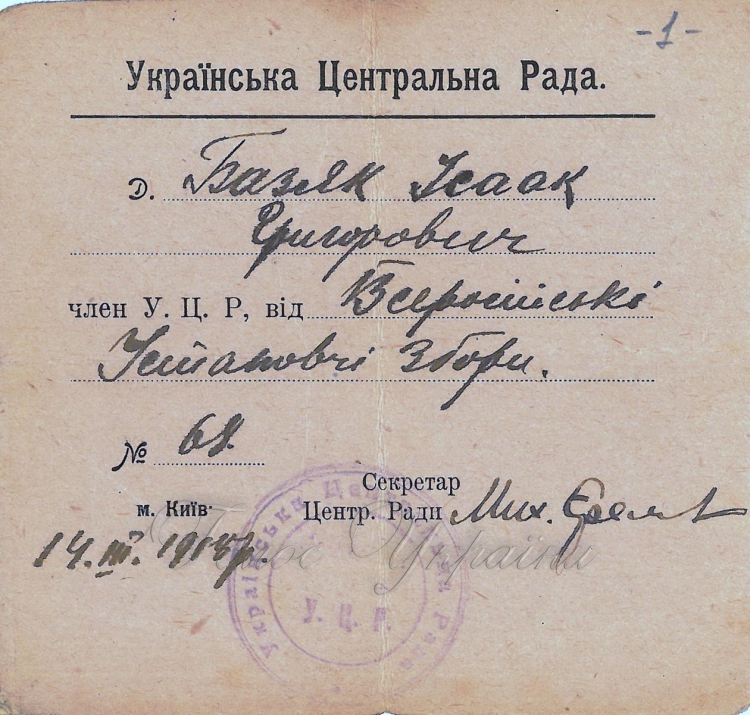 -1-
Українська Центральна Рада.
Д. Базяк Ісаак
Григорович
член У. Ц. Р, від Всеросійські
Установчі Збори.
№ 68.
Секретар
м. Київ Центр. Ради Мих. Єремїв
14. III. 1918 р.
Голос України
Українська Центральна Рада
У. Ц. Р.